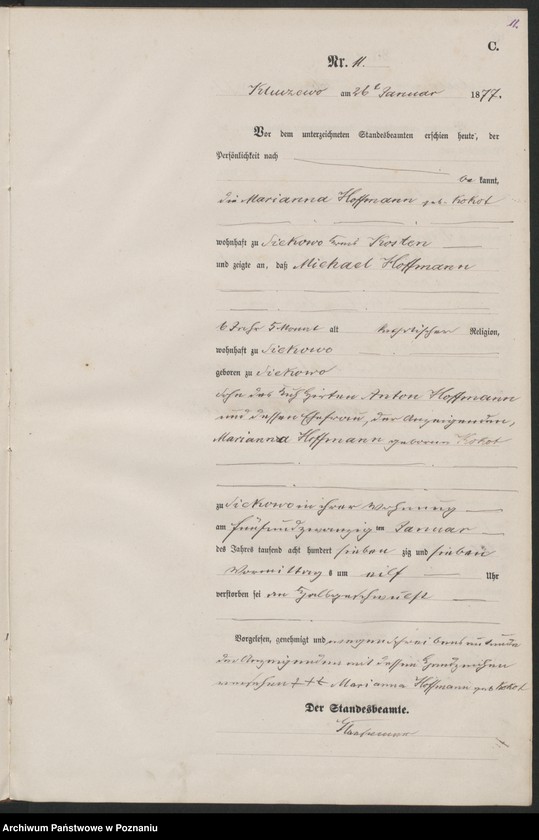 11.
C.
Nr. 11.
am 26t Januar 1877.
Vor dem unterzeichneten Standesbeamten erschien heute, der
Persönlichkeit nach
be kannt,
die Marianna Hoffmann geb. Kokot
wohnhaft zu Siekowo Kreis Kosten
und zeigte an, daß Michael Hoffmann
6 Jahr 5 Monat alt katholischer Religion,
wohnhaft zu Siekowo
geboren zu Siekowo
Sohn des Kuh Hirten Anton Hoffmann
und dessen Ehefrau, der Anzeigenden,
Marianna Hoffmann geborene Kokot
zu Siekowo in ihrer Wohnung
am fünfundzwanzig ten Januar
des Jahres tausend acht hundert sieben zig und sieben
Vormittag s um eilf Uhr
verstorben sei an Halsgeschwulst
Vorgelesen, genehmigt und wegen Schreibensunkunde
der Anzeigenden mit dessen Handzeichen
versehen +++ Marianna Hoffmann geb. Kokot
Der Standesbeamte.
Archiwum Państwowe w Poznaniu